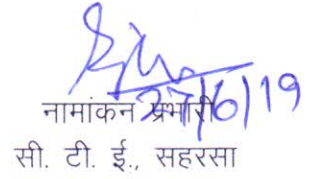 27/6/19
नामांकन प्रभारी
सी. टी. ई., सहरसा